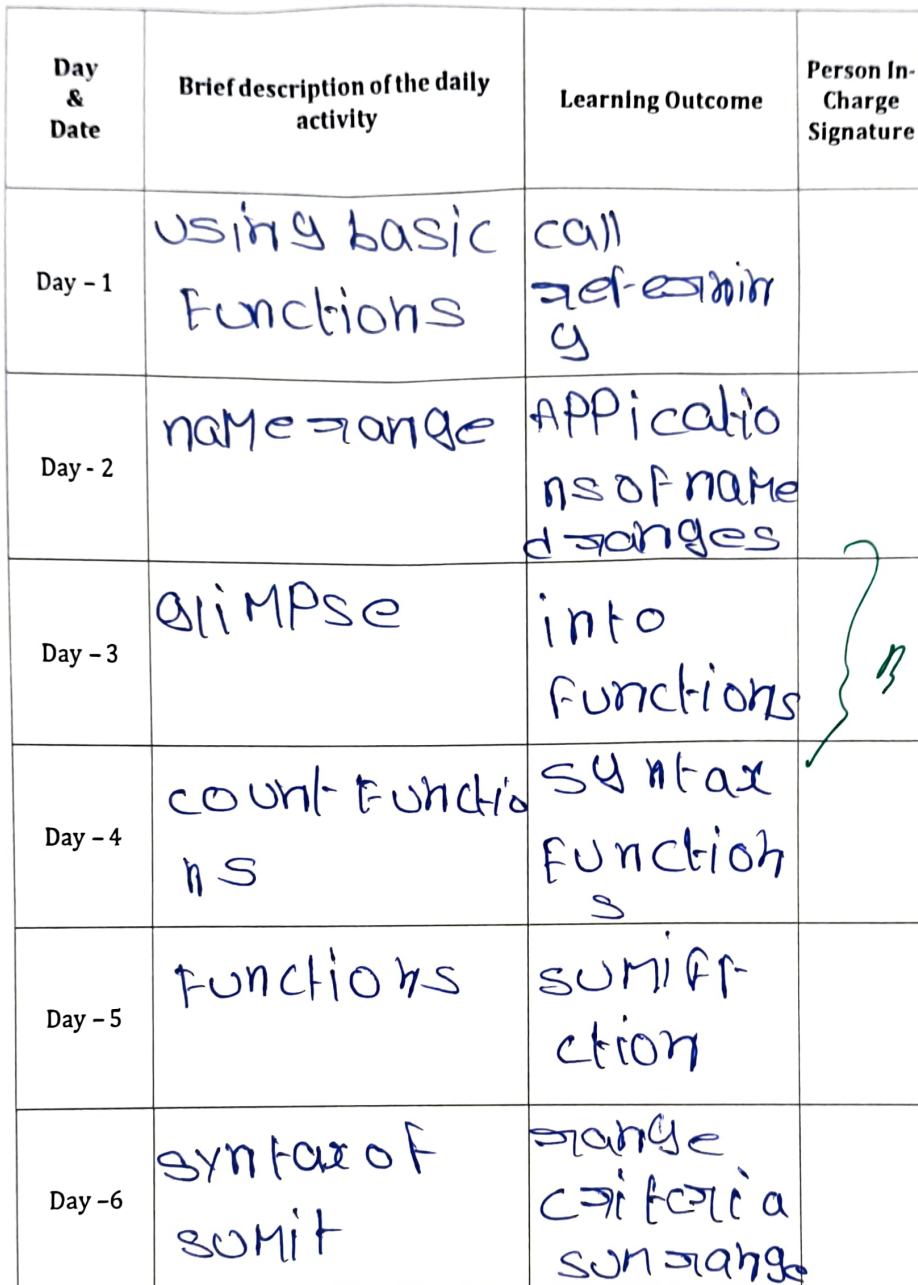 Day
&
Date
Brief description of the daily
activity
Learning Outcome
Person In-
Charge
Signature
Day - 1
using basic
Functions
call
referrin
g
Day - 2
name range
Appicatio
ns of name
d ranges
Day - 3
Glimpse
into
Functions
Day - 4
count Functio
ns
syntax
Function
s
Day - 5
Functions
SUMIFf
ction
Day -6
syntax of
sumit
range
criteria
sum range